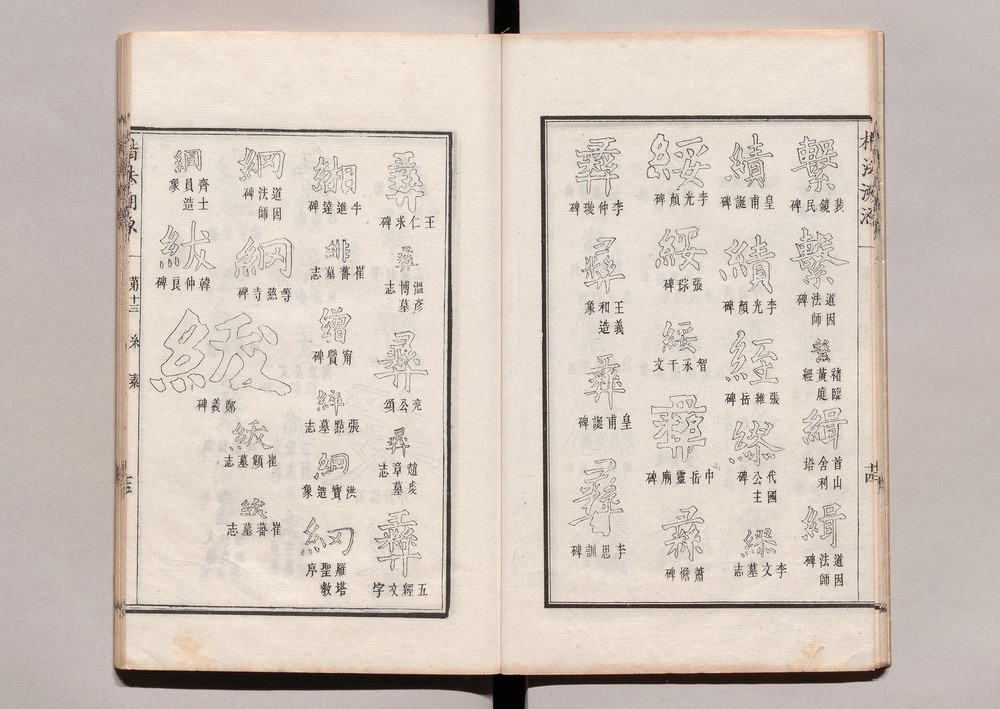 楷法溯源
十四
繫
裴鏡民碑
繫
道因法師碑
繫
褚臨黃庭經
緝
首山舍利塔
緝
道因法師碑
績
皇甫誕碑
績
李光顏碑
絰
張維岳碑
繆
代國公主碑
繆
李文墓志
綏
李光顏碑
綏
張琮碑
綏
智永千文
彝
中岳靈廟碑
彝
蕭憺碑
彝
李仲璇碑
彝
王義和造象
彝
皇甫誕碑
彝
李思訓碑
彝
王仁求碑
彝
溫彥博墓志
彝
兗公頌
彝
章墓志
彝
五經文字
緗
牛進達碑
緋
崔蕃墓志
繒
甯贙碑
縡
張㸃墓志
絅
洪寶造象
網
雁塔聖教序
網
道因法師碑
網
等慈寺碑
紱
鄭羲碑
紱
崔頠墓志
紱
崔蕃墓志
網
齊士員造象
紱
韓仲良碑
楷法溯源
第十三
糸
素